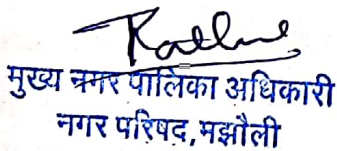 मुख्य नगर पालिका अधिकारी
नगर परिषद, मझौली